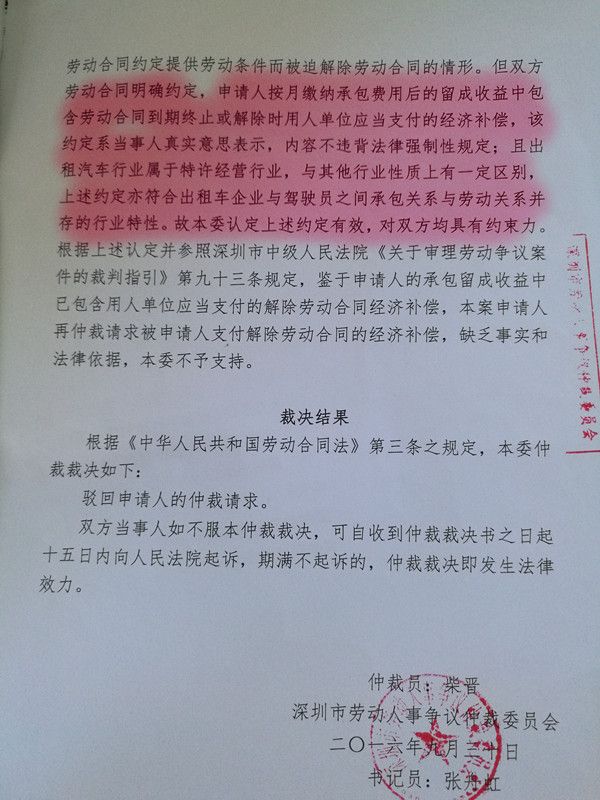 劳动合同约定提供劳动条件而被迫解除劳动合同的情形。但双方
劳动合同明确约定，申请人按月缴纳承包费用后的留成收益中包
含劳动合同到期终止或解除时用人单位应当支付的经济补偿，该
约定系当事人真实意思表示，内容不违背法律强制性规定；且出
租汽车行业属于特许经营行业，与其他行业性质上有一定区别，
上述约定亦符合出租车企业与驾驶员之间承包关系与劳动关系并
存的行业特性。故本委认定上述约定有效，对双方均具有约束力。
根据上述认定并参照深圳市中级人民法院《关于审理劳动争议案
件的裁判指引》第九十三条规定，鉴于申请人的承包留成收益中
已包含用人单位应当支付的解除劳动合同经济补偿，本案申请人
再仲裁请求被申请人支付解除劳动合同的经济补偿，缺乏事实和
法律依据，本委不予支持。
裁决结果
根据《中华人民共和国劳动合同法》第三条之规定，本委仲
裁裁决如下：
驳回申请人的仲裁请求。
双方当事人如不服本仲裁裁决，可自收到仲裁裁决书之日起
十五日内向人民法院起诉，期满不起诉的，仲裁裁决即发生法律
效力。
仲裁员：柴晋
深圳市劳动人事争议仲裁委员会
二〇一六年九月三十日
书记员：张丹虹